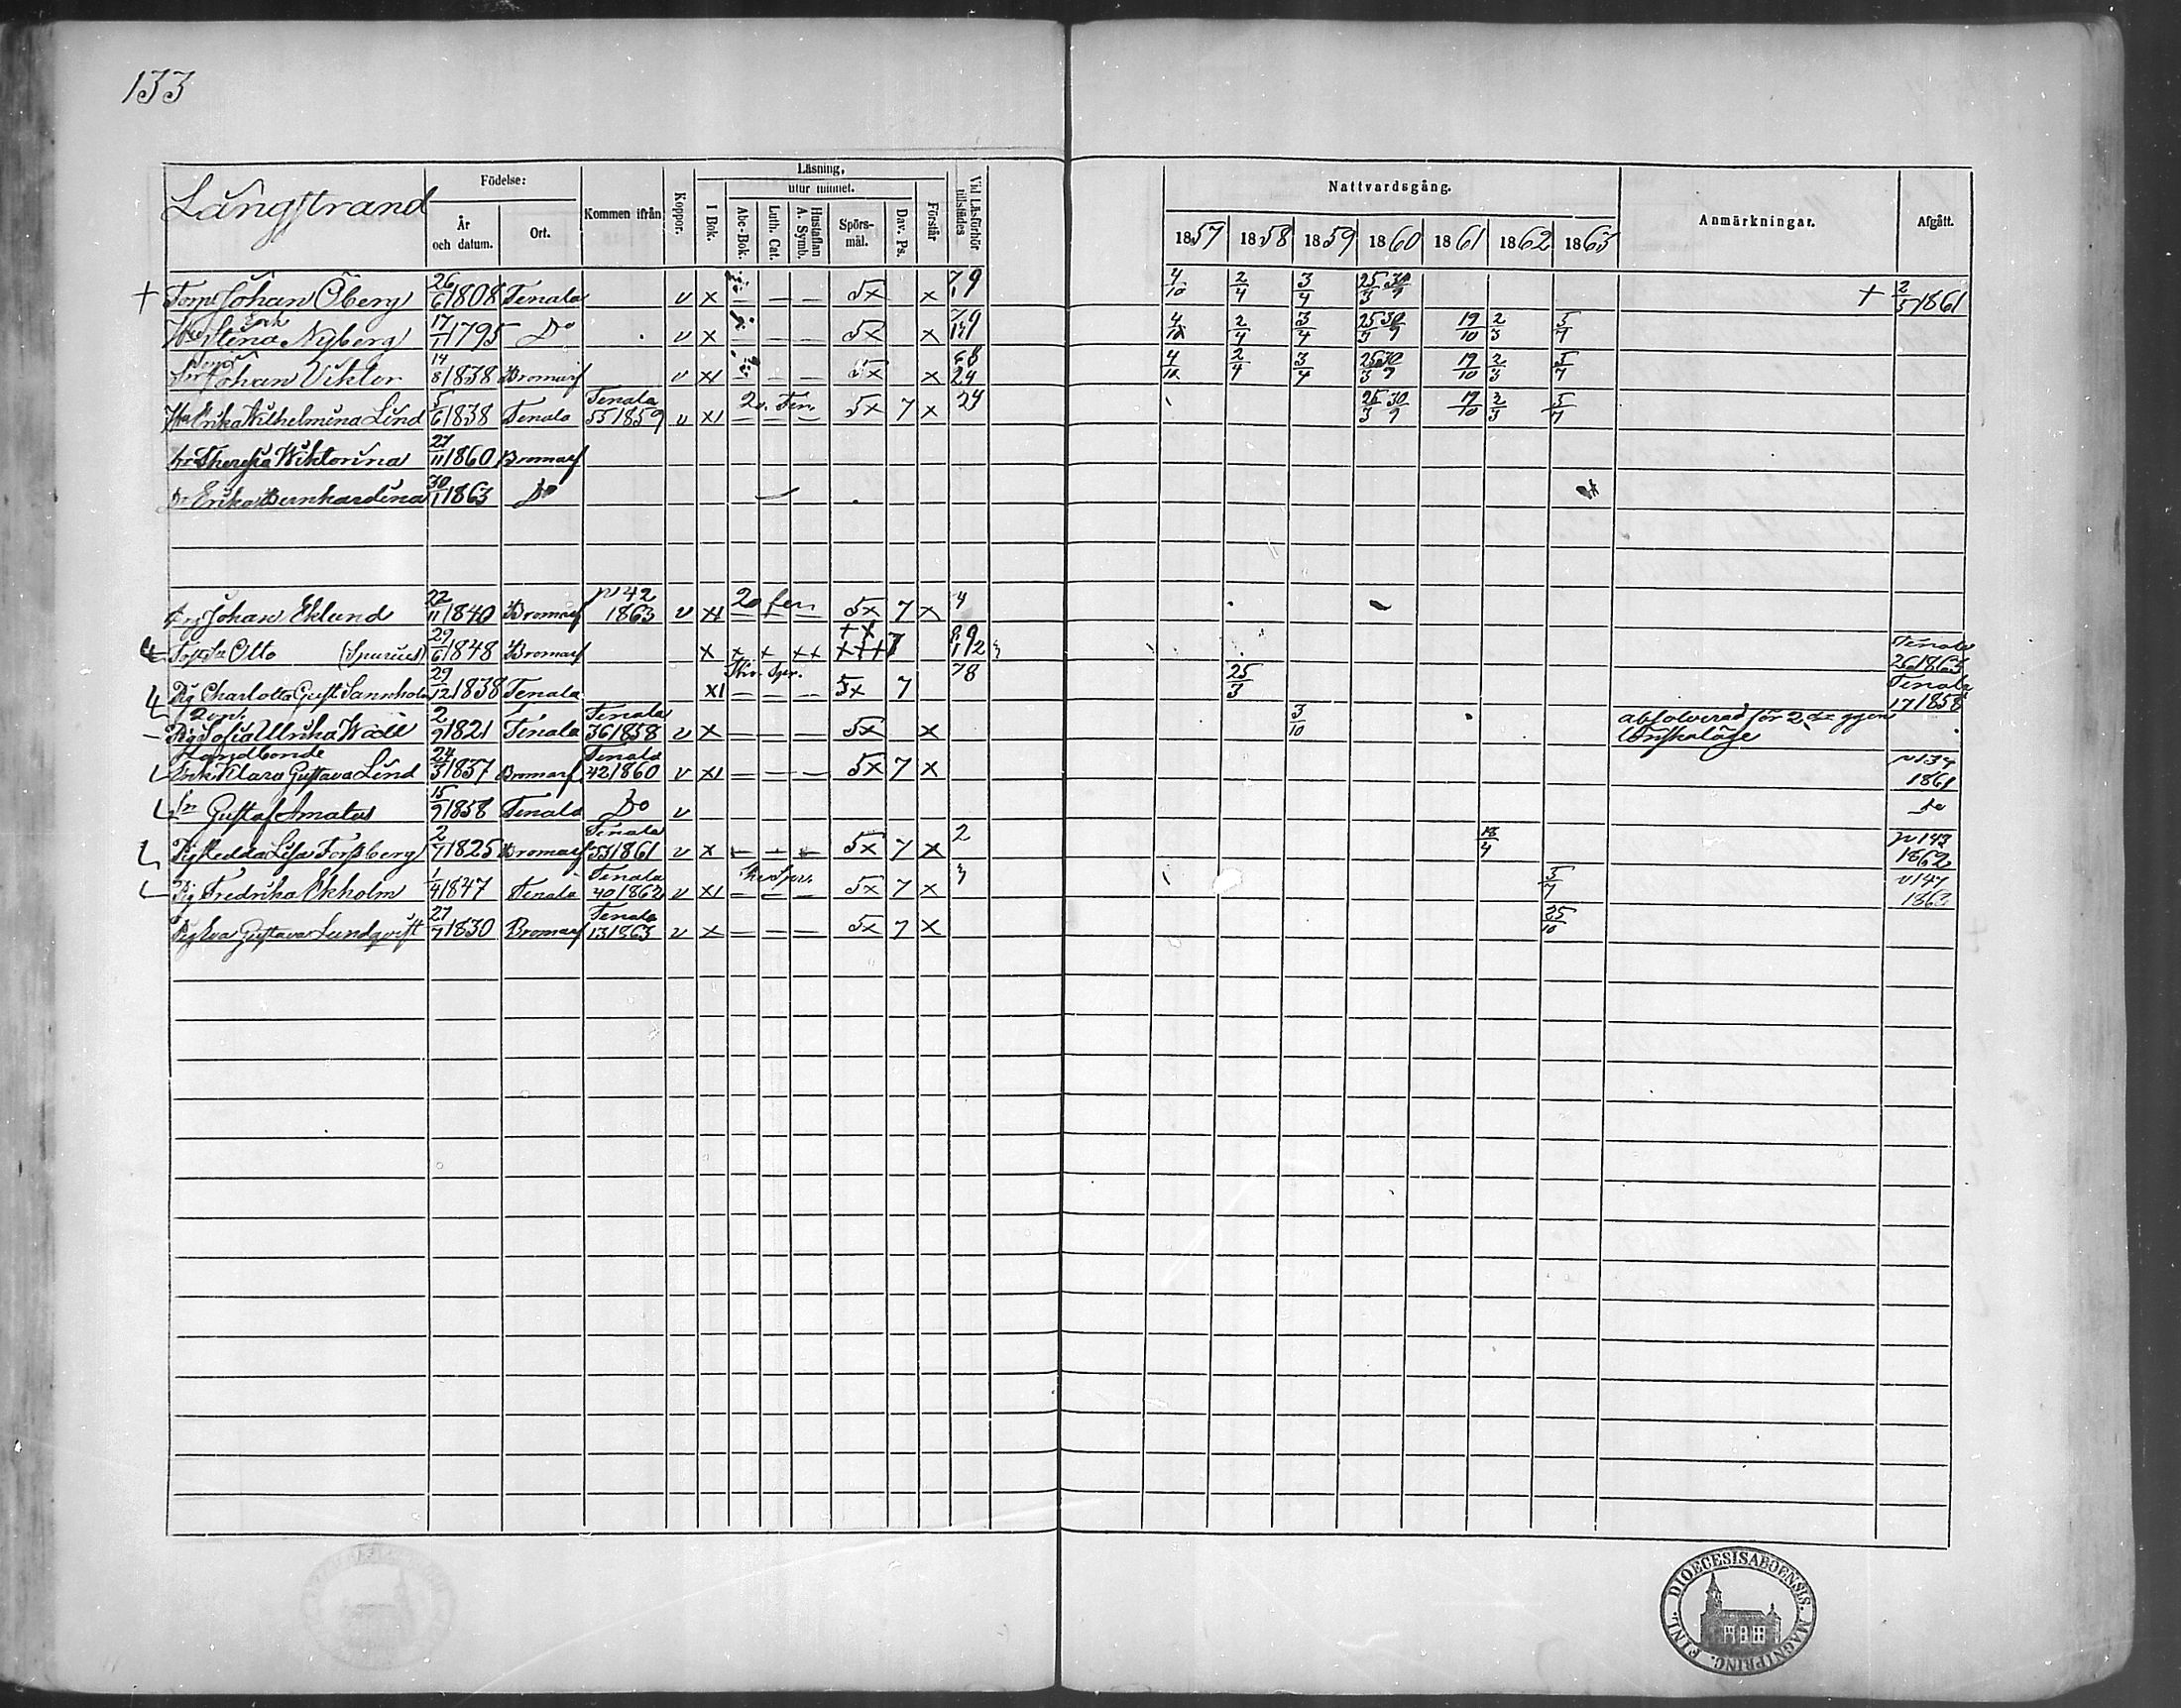 133
Långstrand
Födelse:
År och datum.
Ort.
Kommen ifrån
Koppor.
Läsning,
I Bok.
utur minnet.
Abc-Bok.
Luth. Cat.
Hustaflan A. Symb.
Spörs-mål.
Dav. Ps.
Förstår
Vid Läsförhör tillstädes
Nattvardsgång.
1857 1858 1859 1860 1861 1862 1863
Anmärkningar.
Afgått.
+ Torp Johan Öberg 26/6 1808 Tenala v x — — — 5x x 4/10 2/4 3/4 25/3 30/9 + 2/5 1861
Enk
Stina Nyberg 17/1 1795 Do v x — — — 5x x 4/10 2/4 3/4 25/3 30/9 19/10 2/3 5/7
Johan Viktor 14/8 1838 Bromarf v xı — — — 5x x 4/10 2/4 3/4 25/3 30/9 19/10 2/3 5/7
Hu Erika Wilhelmina Lind 5/6 1838 Tenala Tenala 55 1859 v xı — — — 5x 7 x 24 25/3 30/9 19/10 2/3 5/7
Theresia Wiktorina 27/11 1860 Bromarf
Dr Erika Bernhardina 30/1 1863 Do
Drg Johan Eklund 22/11 1840 Bromarf p 42 1863 v xı — — — 5x 7 x 4
Otto (Spurius) 29/6 1848 Bromarf x x x xx 7 Tenala 26 1863
Pig Charlotta Gust Sannholm 29/12 1838 Tenala xı — — — 5x 7 78 25/3 Tenala 17 1858
Pig Sofia Ulrika Wall 2/9 1821 Tenala Tenala 36 1858 v x — — — 5x x 3/10 absolverad för 2 dra ggen lönskaläge
Strandbonde
Enk Klara Gustava Lind 24/3 1837 Bromarf Tenala 42 1860 v xı — — — 5x 7 x p 134 1861
Sn Gustaf Amatus 15/9 1858 Tenala Do v do
Pig Hedda Lisa Forssberg 2/7 1825 Bromarf Tenala 53 1861 v x — — — 5x 7 x 2 18/4 p 143 1862
Pig Fredrika Ekholm 1/4 1847 Tenala Tenala 40 1862 v xı — — — 5x 7 x 3 5/7 p 147 1863
Pig Eva Gustava Lundqvist 27/7 1830 Bromarf Tenala 13 1863 v x — — — 5x 7 x 25/10
DIOECESIS ABOENSIS. MAGNI PRINC. FINL.